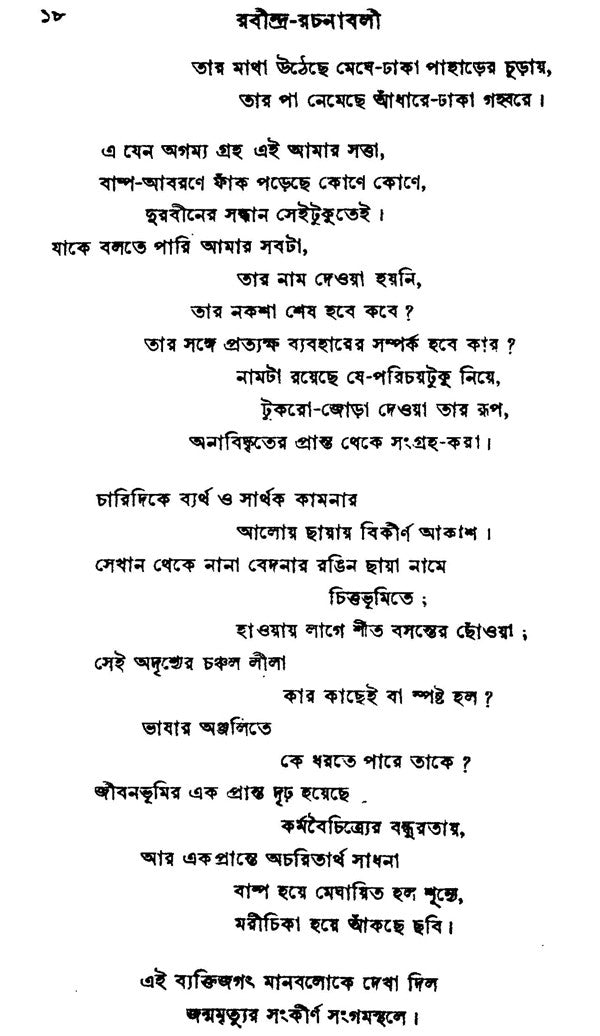 ১৮
রবীন্দ্র-রচনাবলী
তার মাথা উঠেছে মেঘে-ঢাকা পাহাড়ের চূড়ায়,
তার পা নেমেছে আঁধারে-ঢাকা গহ্বরে।
এ যেন অগম্য গ্রহ এই আমার সত্তা,
বাষ্প-আবরণে ফাঁক পড়েছে কোণে কোণে,
দুরবীনের সন্ধান সেইটুকুতেই।
যাকে বলতে পারি আমার সবটা,
তার নাম দেওয়া হয়নি,
তার নকশা শেষ হবে কবে?
তার সঙ্গে প্রত্যক্ষ ব্যবহারের সম্পর্ক হবে কার?
নামটা রয়েছে যে-পরিচয়টুকু নিয়ে,
টুকরো-জোড়া দেওয়া তার রূপ,
অনাবিষ্কৃতের প্রান্ত থেকে সংগ্রহ-করা।
চারিদিকে ব্যর্থ ও সার্থক কামনার
আলোয় ছায়ায় বিকীর্ণ আকাশ।
সেখান থেকে নানা বেদনার রঙিন ছায়া নামে
চিত্তভূমিতে;
হাওয়ায় লাগে শীত বসন্তের ছোঁওয়া;
সেই অদৃশ্যের চঞ্চল লীলা
কার কাছেই বা স্পষ্ট হল?
ভাষার অঞ্জলিতে
কে ধরতে পারে তাকে?
জীবনভূমির এক প্রান্ত দৃঢ় হয়েছে
কর্মবৈচিত্র্যের বন্ধুরতায়,
আর একপ্রান্তে অচরিতার্থ সাধনা
বাষ্প হয়ে মেঘায়িত হল শূন্যে,
মরীচিকা হয়ে আঁকছে ছবি।
এই ব্যক্তিজগৎ মানবলোকে দেখা দিল
জন্মমৃত্যুর সংকীর্ণ সংগমস্থলে।